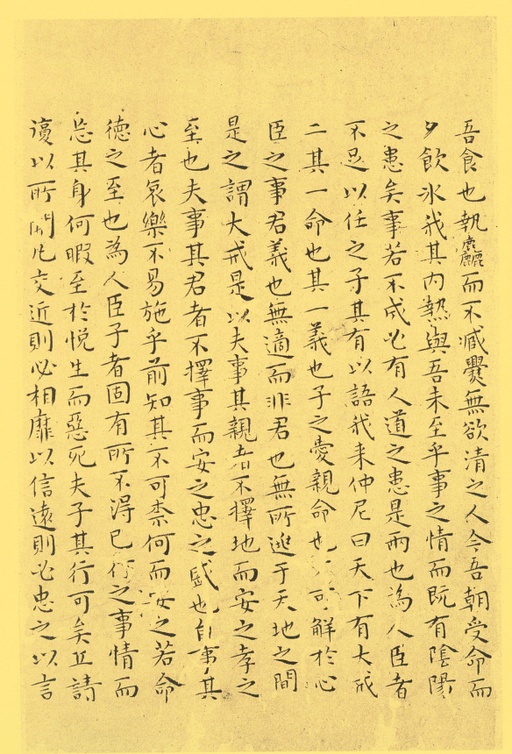 吾食也執麤而不臧爨無欲清之人今吾朝受命而
夕飲冰我其內熱與吾未至乎事之情而既有陰陽
之患矣事若不成必有人道之患是兩也為人臣者
不足以任之子其有以語我来仲尼曰天下有大戒
二其一命也其一義也子之愛親命也可解於心
臣之事君義也無適而非君也無所逃于天地之間
是之謂大戒是以夫事其親者不擇地而安之孝之
至也夫事其君者不擇事而安之忠之盛也自事其
心者哀樂不易施乎前知其不可柰何而安之若命
德之至也為人臣子者固有所不得已行之事情而
忘其身何暇至於悅生而惡死夫子其行可矣丘請
復以所聞凡交近則必相靡以信遠則必忠之以言